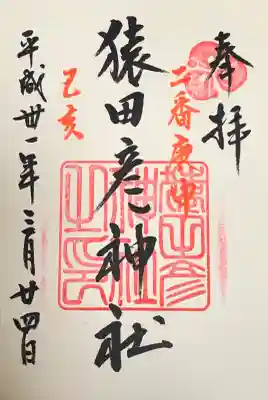 奉拝
二番庚申
猿田彦神社
己亥
平成卅一年三月廿四日